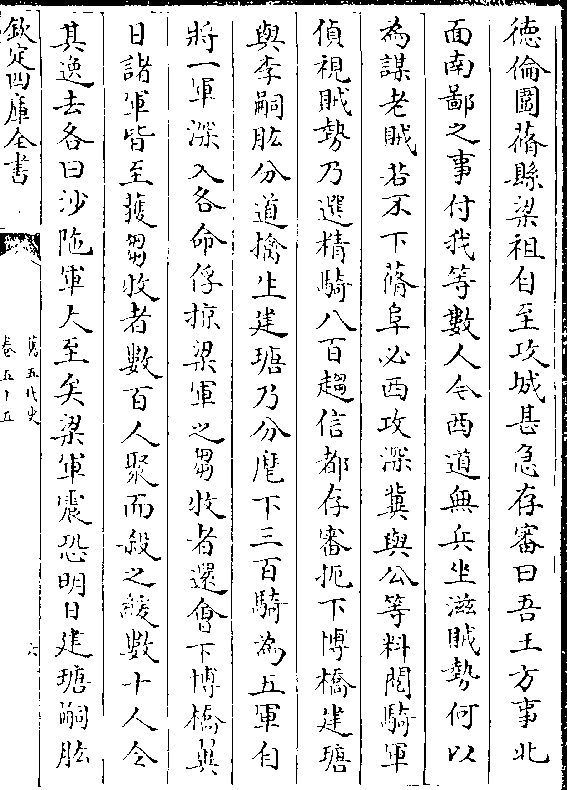 德倫圍蓨縣梁祖自至攻城甚急存審曰吾王方事北
面南鄙之事付我等數人今西道無兵坐滋賊勢何以
為謀老賊若不下蓨阜必西攻深冀與公等料閱騎軍
偵視賊勢乃選精騎八百趨信都存審扼下博橋建瑭
與李嗣肱分道擒生建瑭乃分麾下三百騎為五軍自
將一軍深入各命俘掠梁軍之芻牧者還㑹下博橋翼
日諸軍皆至獲芻牧者數百人聚而殺之緩數十人令
其逸去各曰沙陁軍大至矣梁軍震恐明日建瑭嗣肱
欽定四庫全書
舊五代史
卷五十五
六